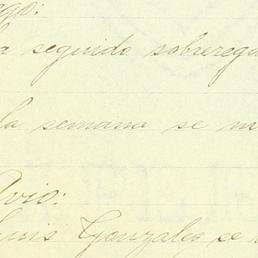 ego:
a seguido sobrerega
la semana se m
Avio:
Luis Gonzales se